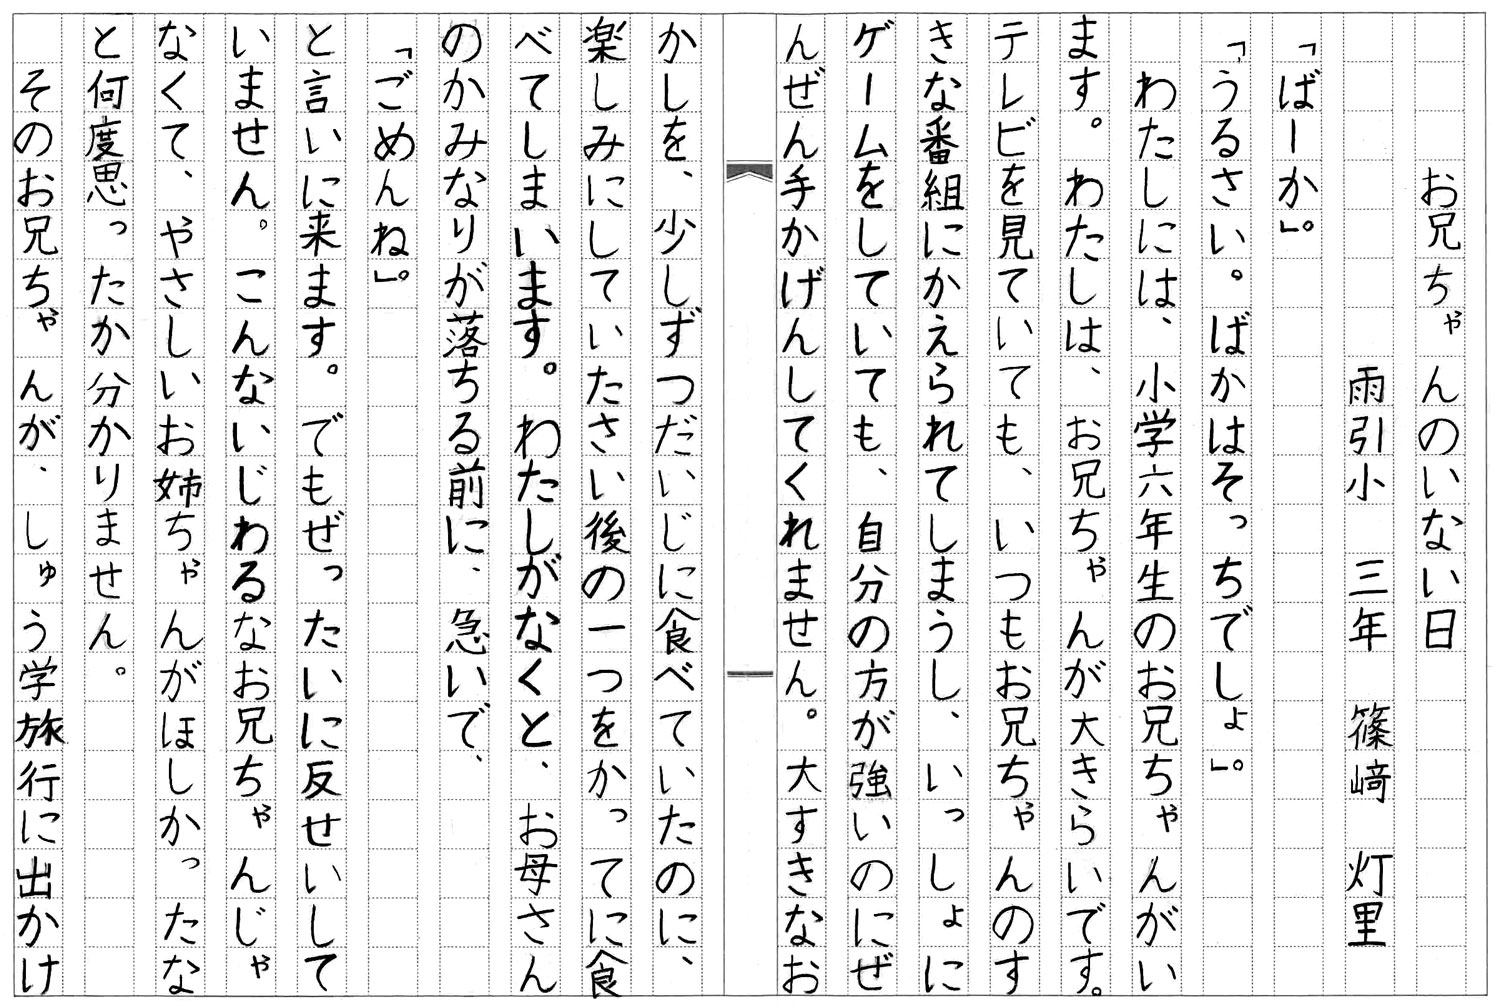 お兄ちゃんのいない日
雨引小 三年 篠﨑 灯里
「ばーか」。
「うるさい。ばかはそっちでしょ」。
わたしには、小学六年生のお兄ちゃんがい
ます。わたしは、お兄ちゃんが大きらいです。
テレビを見ていても、いつもお兄ちゃんのす
きな番組にかえられてしまうし、いっしょに
ゲームをしていても、自分の方が強いのにぜ
んぜん手かげんしてくれません。大すきなお
かしを、少しずつだいじに食べていたのに、
楽しみにしていたさい後の一つをかってに食
べてしまいます。わたしがなくと、お母さん
のかみなりが落ちる前に、急いで、
「ごめんね」。
と言いに来ます。でもぜったいに反せいして
いません。こんないじわるなお兄ちゃんじゃ
なくて、やさしいお姉ちゃんがほしかったな
と何度思ったか分かりません。
そのお兄ちゃんが、しゅう学旅行に出かけ